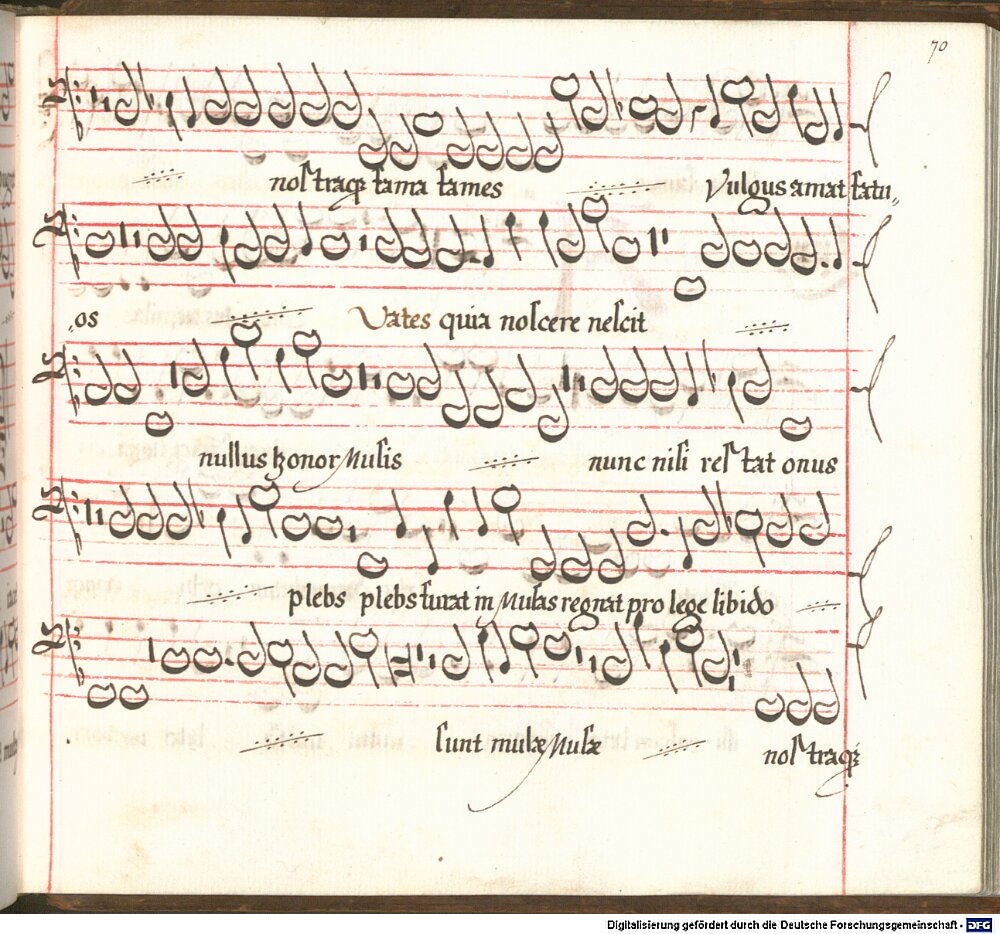 70
nostraq; fama fames Vulgus amat fatu„
„os Vates quia noscere nescit
nullus honor Musis nunc nisi restat onus
plebs plebs furat in Musas regnat pro lege libido
sunt mutæ Musæ nostraq;
Digitalisierung gefördert durch die Deutsche Forschungsgemeinschaft - DFG